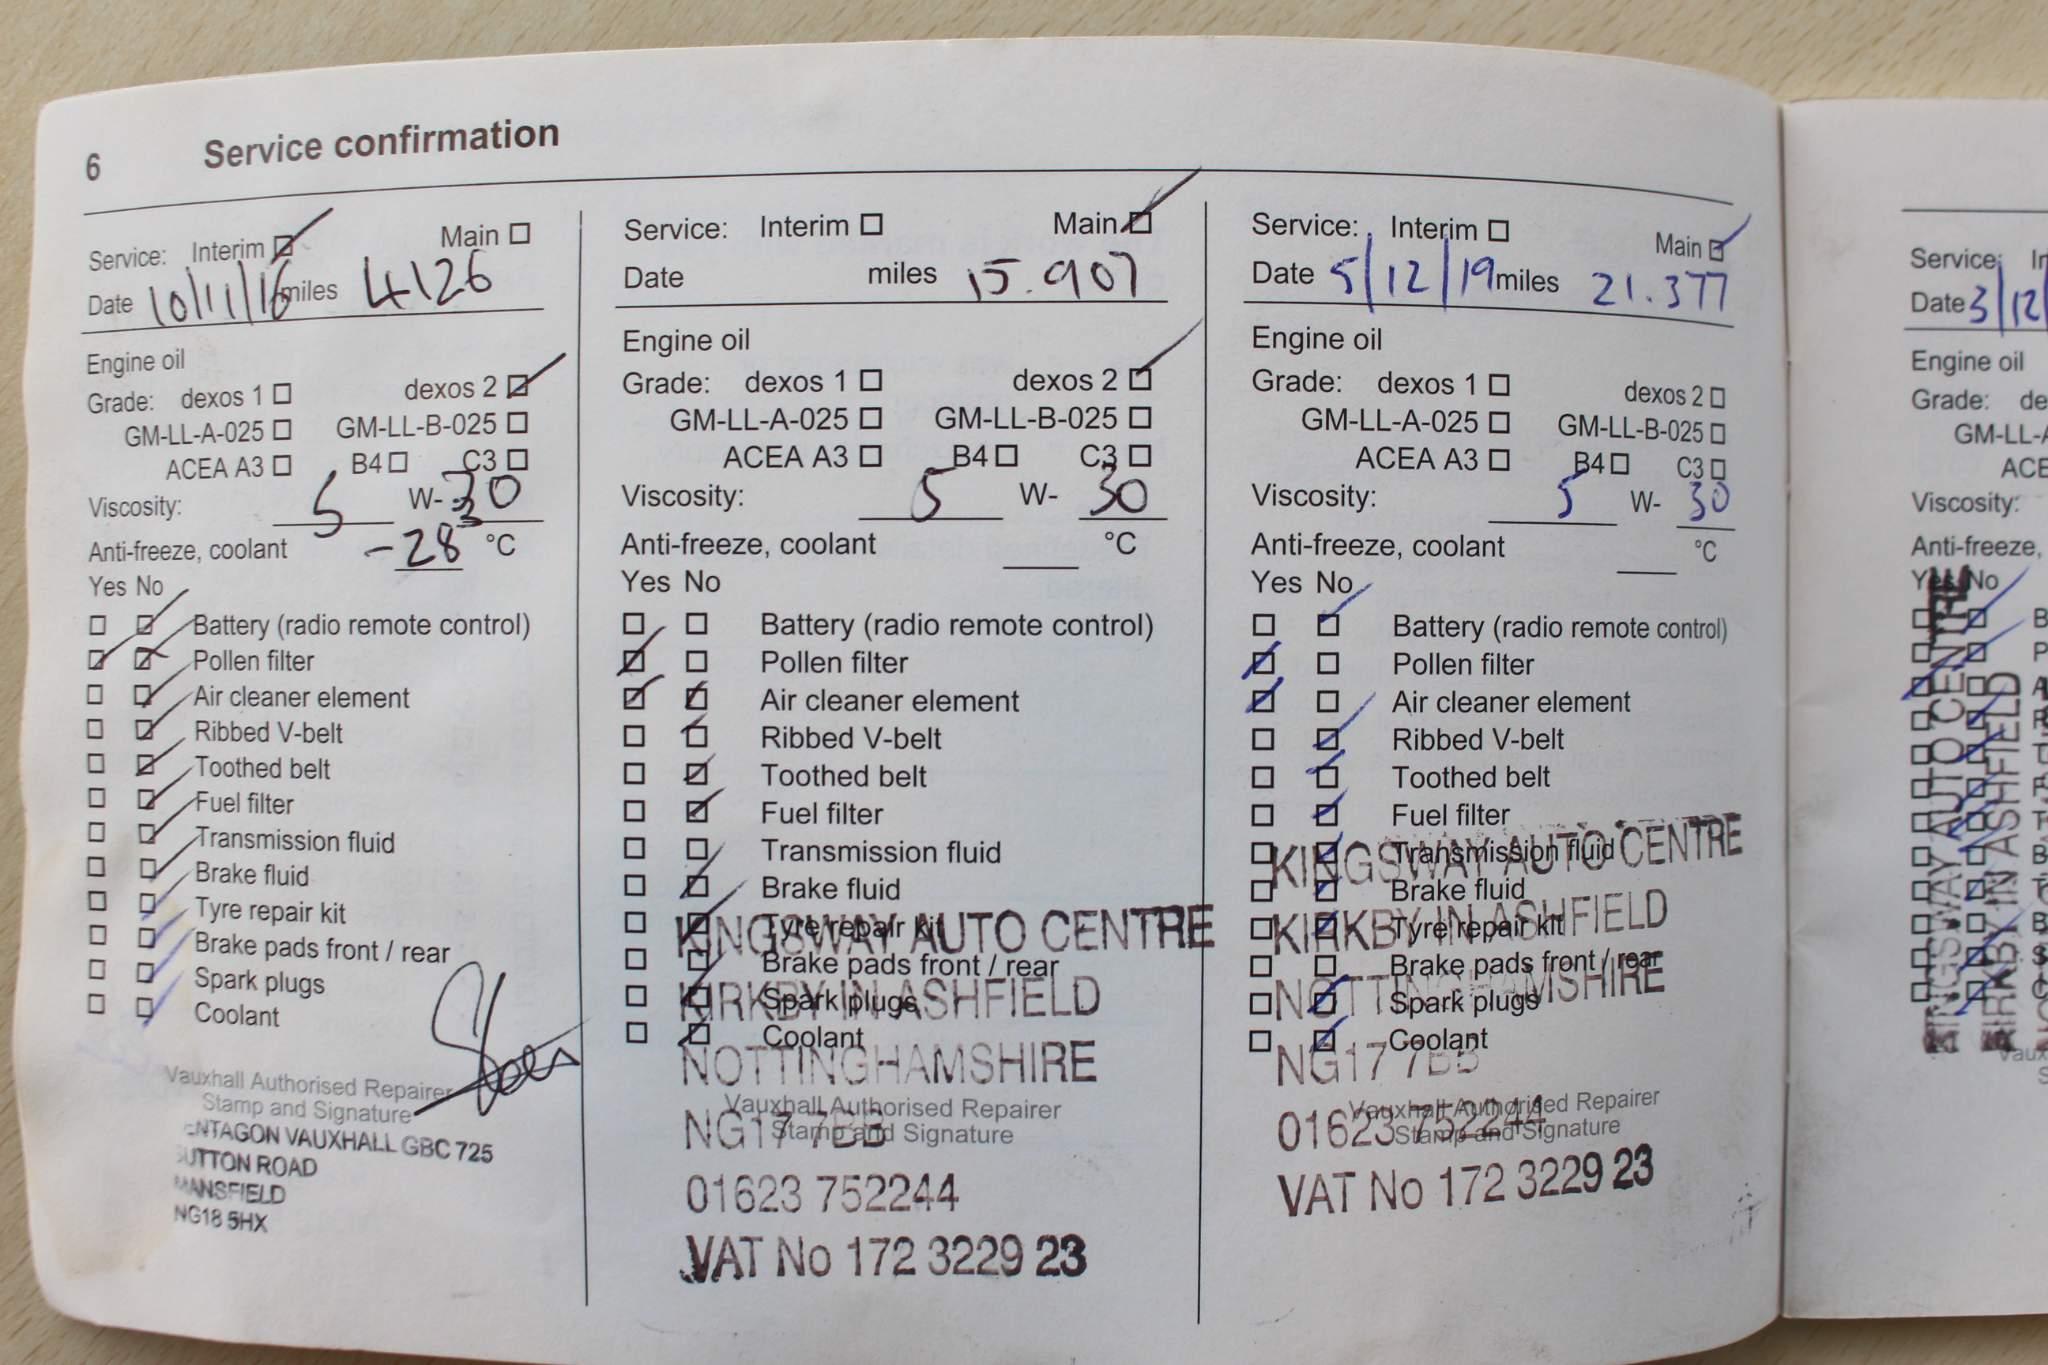 6 Service confirmation
Service: Interim Main
Date 10/11/16 miles 4126
Engine oil
Grade: dexos 1 dexos 2
GM-LL-A-025 GM-LL-B-025
ACEA A3 B4 C3
Viscosity: 5 W- 30
Anti-freeze, coolant -28 °C
Yes No
Battery (radio remote control)
Pollen filter
Air cleaner element
Ribbed V-belt
Toothed belt
Fuel filter
Transmission fluid
Brake fluid
Tyre repair kit
Brake pads front / rear
Spark plugs
Coolant
Vauxhall Authorised Repairer
Stamp and Signature
VAUXHALL GBC 725
ROAD
MANSFIELD
NG18 5HX
Service: Interim Main
Date miles 15.907
Engine oil
Grade: dexos 1 dexos 2
GM-LL-A-025 GM-LL-B-025
ACEA A3 B4 C3
Viscosity: 5 W- 30
Anti-freeze, coolant °C
Yes No
Battery (radio remote control)
Pollen filter
Air cleaner element
Ribbed V-belt
Toothed belt
Fuel filter
Transmission fluid
Brake fluid
Tyre repair kit
KINGSWAY AUTO CENTRE
Brake pads front / rear
KIRKBY IN ASHFIELD
Spark plugs
Coolant
NOTTINGHAMSHIRE
Vauxhall Authorised Repairer
NG17 7BB
Stamp and Signature
01623 752244
VAT No 172 3229 23
Service: Interim Main
Date 5/12/19 miles 21.377
Engine oil
Grade: dexos 1 dexos 2
GM-LL-A-025 GM-LL-B-025
ACEA A3 B4 C3
Viscosity: 5 W- 30
Anti-freeze, coolant °C
Yes No
Battery (radio remote control)
Pollen filter
Air cleaner element
Ribbed V-belt
Toothed belt
Fuel filter
Transmission fluid
KINGSWAY AUTO CENTRE
Brake fluid
KIRKBY IN ASHFIELD
Tyre repair kit
Brake pads front / rear
NOTTINGHAMSHIRE
Spark plugs
Coolant
NG17 7BB
Vauxhall Authorised Repairer
01623 752244
Stamp and Signature
VAT No 172 3229 23
Service:
Date 3/12/
Engine oil
Grade:
Viscosity:
Anti-freeze,
Yes No
KINGSWAY AUTO CENTRE
KIRKBY IN ASHFIELD